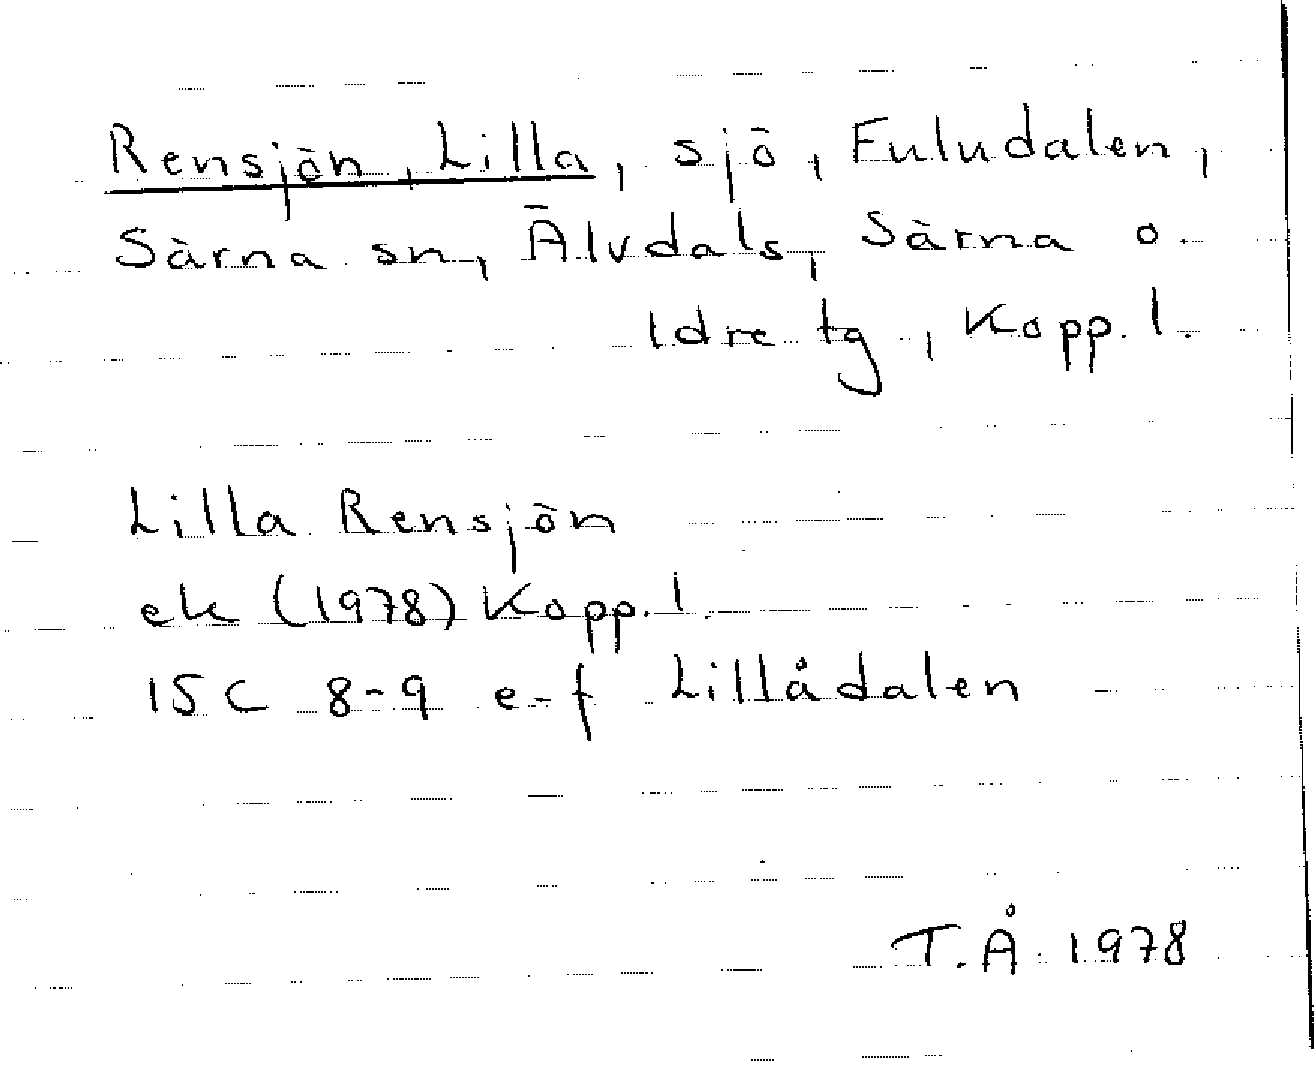 Rensjön, Lilla, sjö, Fuludalen,
Särna sn, Älvdals, Särna o.
Idre tg, Kopp. l.
Lilla Rensjön
ek (1978) Kopp. l.
15C 8-9 e-f Lillådalen
T.Å. 1978